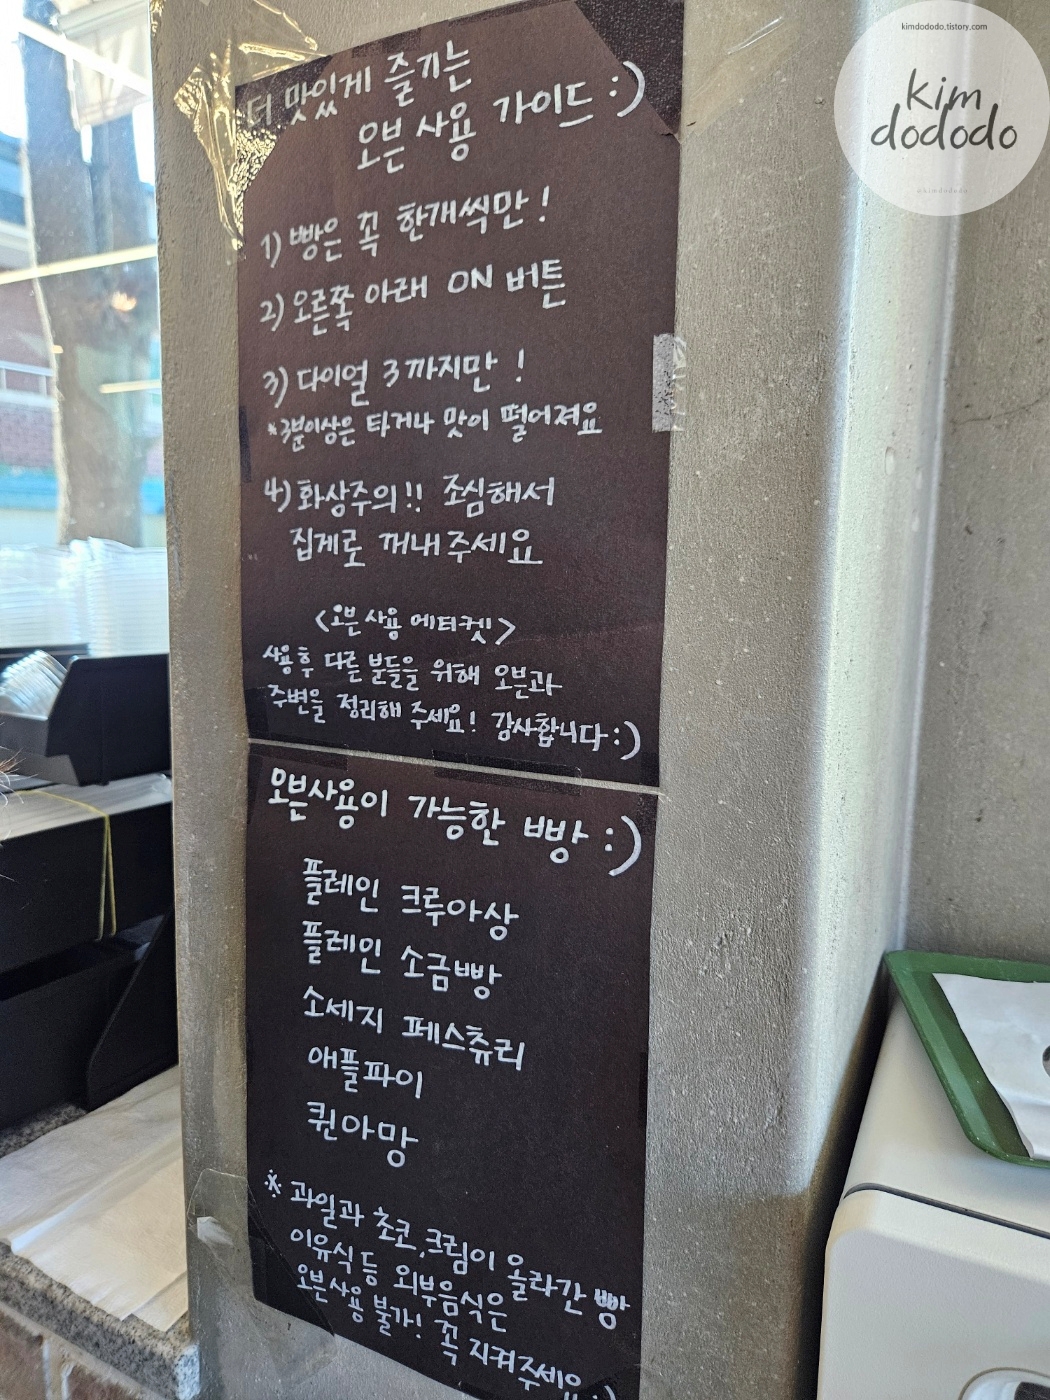 더 맛있게 즐기는
오븐 사용 가이드 :)
1) 빵은 꼭 한개씩만!
2) 오른쪽 아래 ON 버튼
3) 다이얼 3까지만!
*3분이상은 타거나 맛이 떨어져요
4) 화상주의!! 조심해서
집게로 꺼내주세요
<오븐 사용 에티켓>
사용 후 다른 분들을 위해 오븐과
주변을 정리해 주세요! 감사합니다 :)
오븐사용이 가능한 빵 :)
플레인 크루아상
플레인 소금빵
소세지 페스츄리
애플파이
퀸아망
* 과일과 초코, 크림이 올라간 빵
이유식 등 외부음식은
오븐사용 불가! 꼭 지켜주세요 :)
kimdododo.tistory.com
kim
dododo
@kimdododo